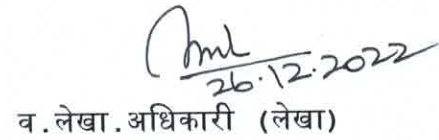 26.12.2022
व.लेखा.अधिकारी (लेखा)